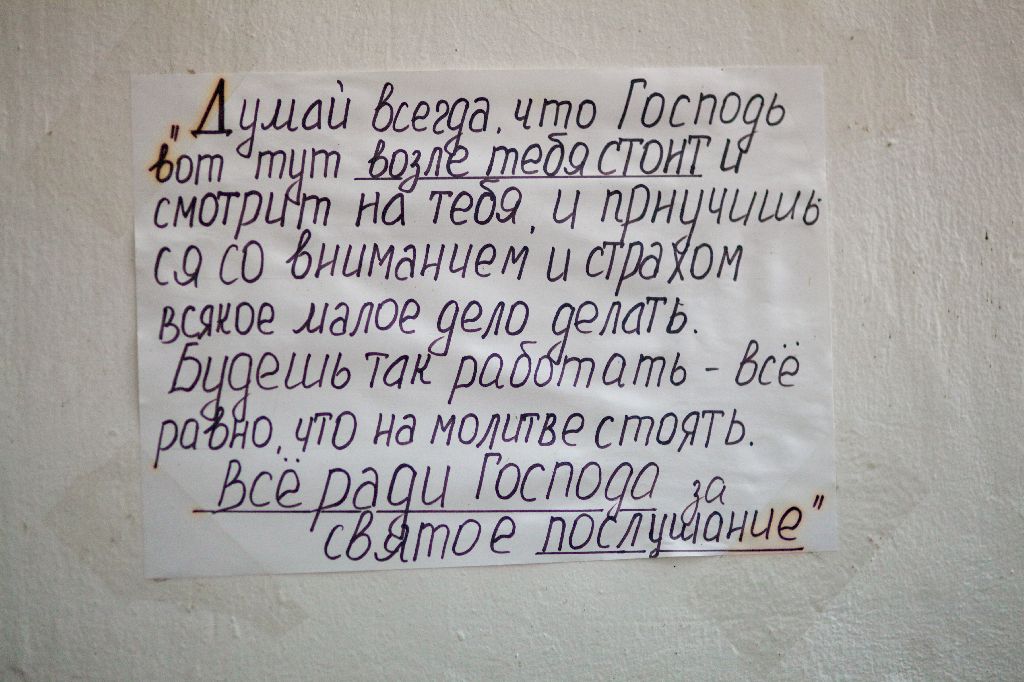 „Думай всегда, что Господь
вот тут возле тебя стоит и
смотрит на тебя, и приучишь
ся со вниманием и страхом
всякое малое дело делать.
Будешь так работать - всё
равно, что на молитве стоять.
Всё ради Господа за
святое послушание"